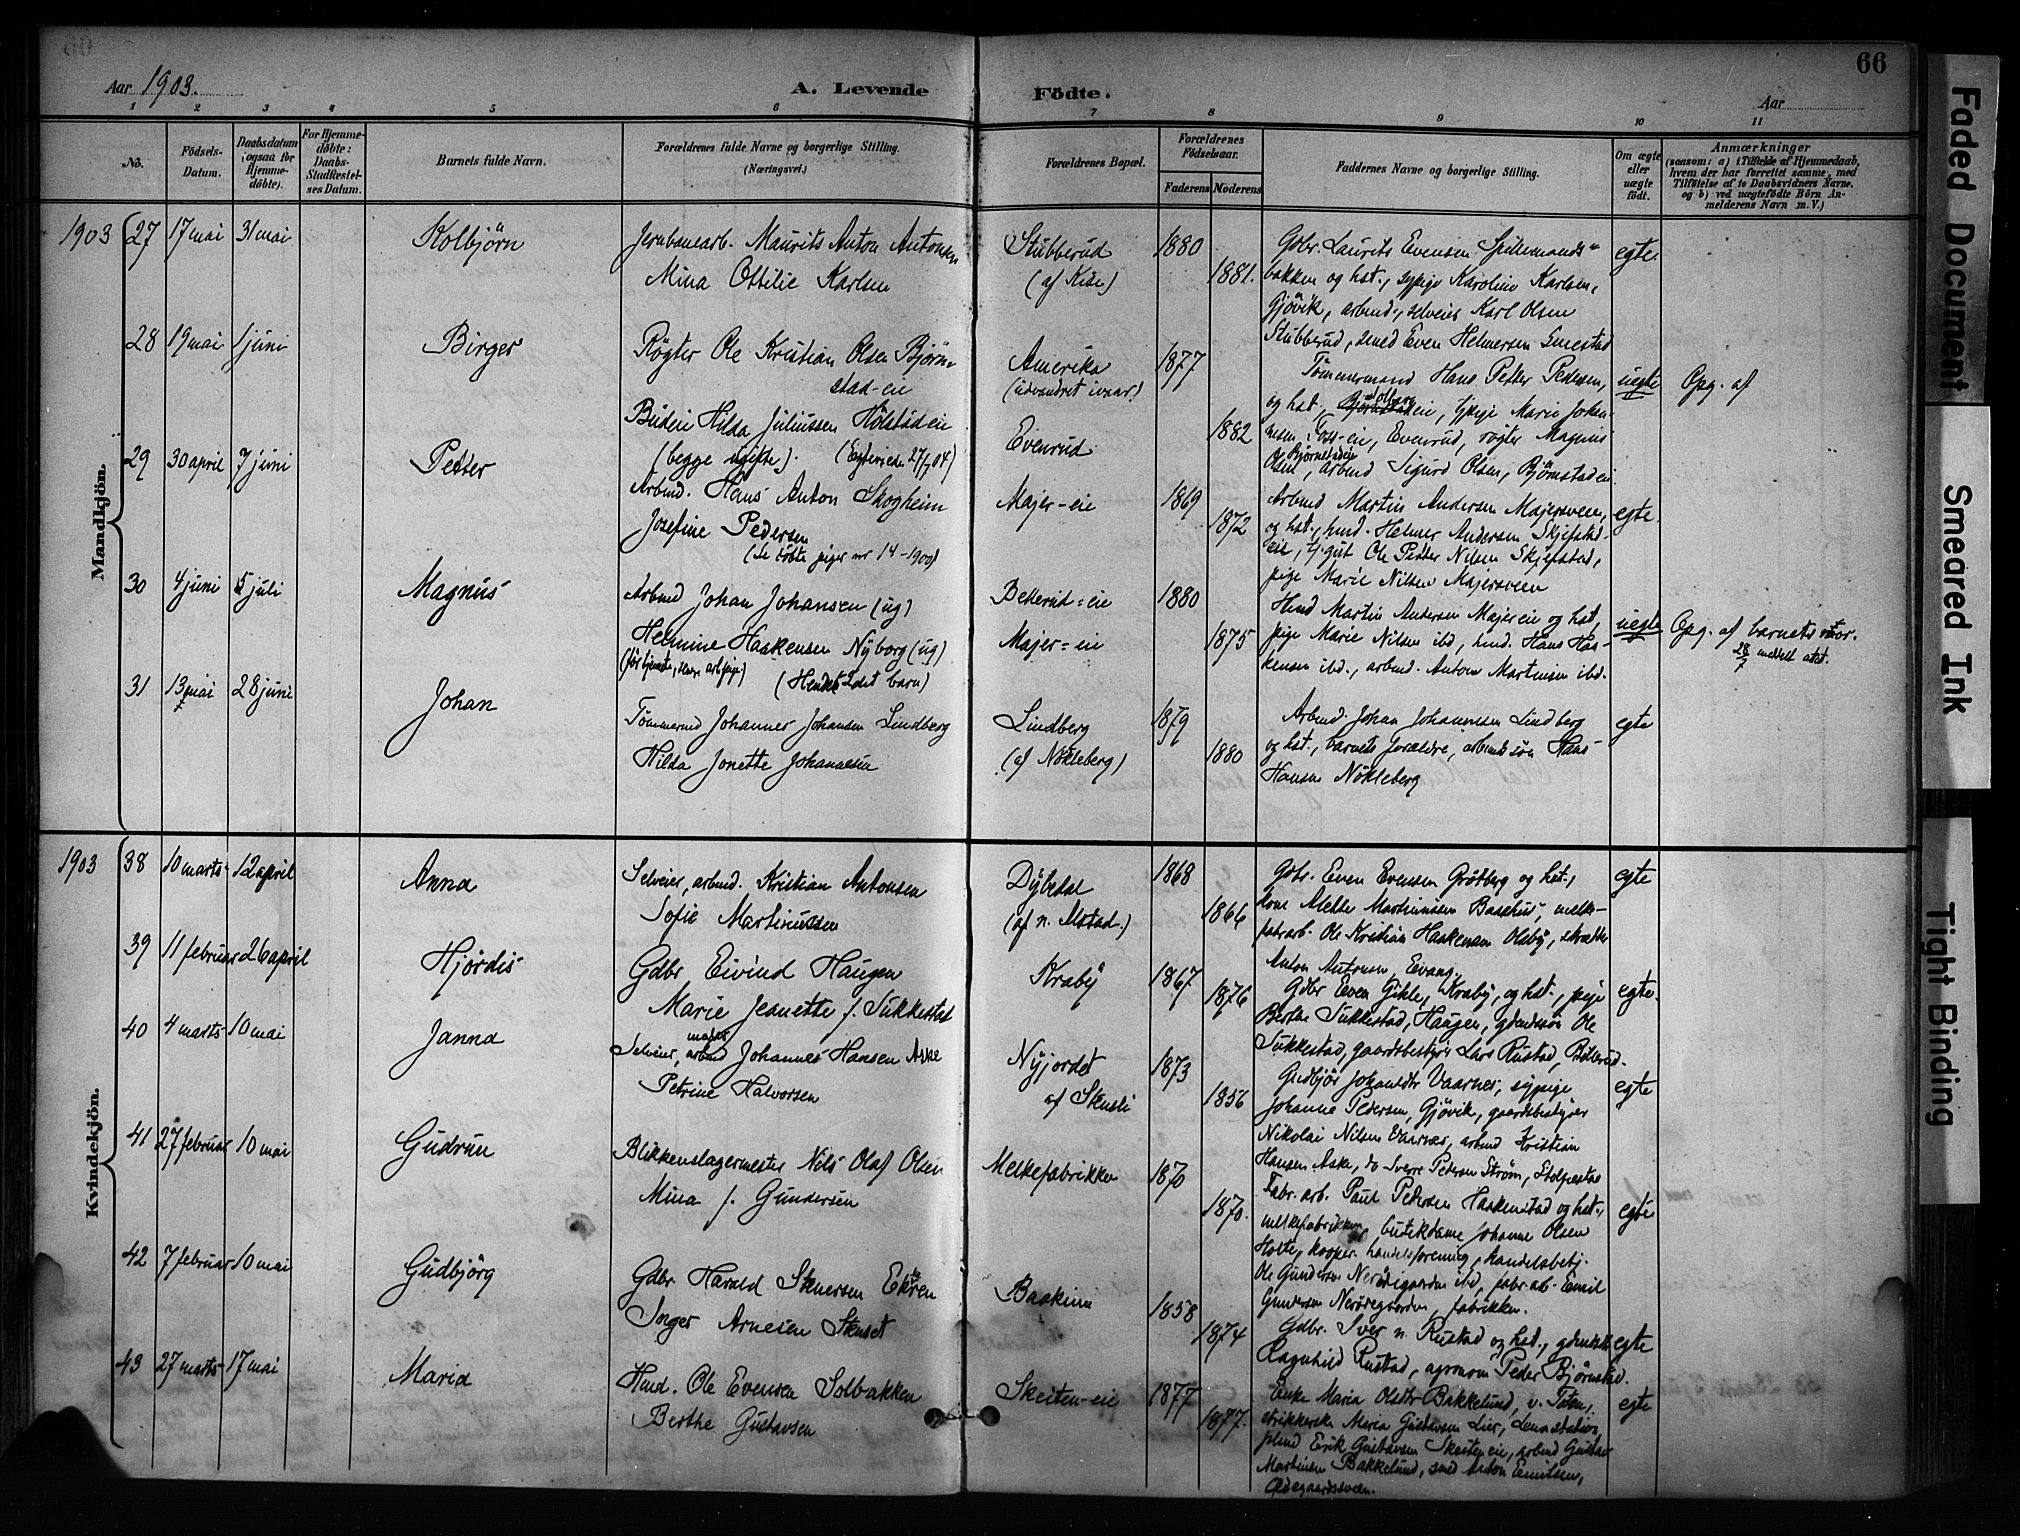 66
Aar 1903.
A. Levende Födte.
Aar
1 2 3 4 5 6 7 8 9 10 11
No.
Födsels-Datum.
Daabsdatum (ogsaa for Hjemme-döbte).
For Hjemme-döbte: Daabs-Stadfæstel-ses Datum.
Barnets fulde Navn.
Forældrenes fulde Navne og borgerlige Stilling.
(Næringsvei.)
Forældrenes Bopæl.
Forældrenes Födselsaar.
Faderens Moderens
Faddernes Navne og borgerlige Stilling.
Om ægte eller uægte födt.
Anmærkninger
(saasom: a) i Tilfælde af Hjemmedaab,
hvem der har forrettet samme, med
Tilföielse af to Daabsvidners Navne,
og b) ved uægtefödte Börn An-
melderens Navn m. V.)
Mandkjön.
1903 27 17 mai 31 mai Kolbjörn
Jernbanearb. Maurits Anton Antonsen
Mina Ottilie Karlsen
Stubberud
(af Kise)
1880
1881.
Gdbr. Laurits Evensen Spillemands-
bakken og hst., sypige Karoline Karlsen,
Gjövik, arbmd., selveier Karl Olsen
Stubberud, smed Even Helmersen Smestad
egte.
28 19 mai 1 juni Birger
Røgter Ole Kristian Olsen Björn-
stad-eie
Budeie Hilda Juliussen Holstadeie
(begge ugifte). (Egteviede 27/7 04)
Amerika
(udvandret ivaar)
Evenrud
1877
1882
Tömmermand Hans Petter Pedersen,
og hst., eie, tj.pige Marie Johan-
nesen Foss-eie, Evenrud, røgter Magnus
Olsen, Bjørnstadeie arbmd Sigurd Olsen, Bjørnstadeie
uegte
Opg. af
29 30 april 7 juni Petter
Arbmd. Hans Anton Skogheim
Josefine Pedersen
(Se döbte piger nr 14-1900)
Majer-eie
1869
1872
Arbmd Martin Andersen Majersveen,
og hst., hmd. Helmer Andersen Skjefstad-
eie, tj.gut Ole Petter Nilsen Skjefstad,
pige Marie Nilsen Majersveen
egte.
30 4 juni 5 juli Magnus
Arbmd Johan Johansen (ug)
Helmine Haakensen Nyborg (ug)
(Hendes 2det barn)
Bekkerud-eie
Majer-eie
1880
1875
Hmd Martin Andersen Majereie og hst,
pige Marie Nilsen ibd, hmd. Hans Haa-
kensen ibd., arbmd. Anton Martinsen ibd.
uegte
Opg. af barnets mor.
28/7 meddelt attst.
31 13 mai 28 juni Johan
Tømmermd Johannes Johansen Lindberg
Hilda Jonette Johannesen
Lindberg
(af Nökleberg)
1879
1880
Arbmd. Johan Johannesen Lindberg
og hst., barnets forældre, arbmdssøn Hans
Hansen Nökleberg
egte
Kvindekjön.
1903 38 10 marts 12 april Anna
Selveier, arbmd. Kristian Antonsen
Sofie Martinussen
Dybdal
(af n. Alstad.)
1868
1866
Gdbr. Even Evensen Grötberg og hst.,
kone Mathe Martinussen Baashus, melke-
fabrarb. Ole Kristian Haakensen Olsby, skrædder
Anton Antonsen, Evang.
egte
39 11 februar 26 april Hjørdis
Gdbr Eivind Haugen
Marie Jeanette f. Sukkestad
Kraby
1867
1876
Gdbr Even Gihle, Kraby, og hst., pige
Berthe Sukkestad, Haugen, gdmdssøn Ole
Sukkestad, gaardsbestyrer Lars Rustad, Billerud.
egte.
40 4 marts 10 mai Janna
Selveier, arbmd Johannes Hansen Aske
Petrine Halvorsen
Nyjordet
af Skusli
1873
1856
Gudbjør Johansdtr Vaarnes, sypige
Johanne Pedersen, Gjövik, gaardsbestyrer
Nikolai Nilsen Vaarnes, arbmd Kristian
Hansen Aske, do Sverre Pedersen Strøm, Stolpestad
egte
41 27 februar 10 mai Gudrun
Blikkenslagermester Nils Olaf Olsen
Mina f. Gundersen
Melkefabrikken
1870
1870.
Fabr. arb. Paul Pedersen Haakenstad og hst.,
melkefabrikken, butikdame Johanne Olsen
Holte, kooper. handelsforening, handelsbetj.
Ole Gundersen ibd, fabr.arb. Emil
Gundersen, fabrikken.
egte
42 7 februar 10 mai Gudbjörg
Gdbr Harald Stenersen Ekren
Inger Arnesen Stenset
Baskerud
1858
1874
Gdbr. Iver n. Rustad og hst., gdmdsdtr
Ragnhild Rustad, agronom Peder Bjørnstad.
egte
43 27 marts 17 mai Maria
Hmd. Ole Evensen Solbakken
Berthe Gustavsen
Skeiten-eie
1877
1877.
Enke Maria Olsdtr Bakkelund, v. Toten,
strikkerske Maria Gustavsen Lier, Lena station,
plmd Erik Gustavsen Skeiteneie, arbmd Gustav
Martinsen Bakkelund, smed Anton Emilsen,
Ødegaardssveen.
egte
Faded Document
Smeared Ink
Tight Binding